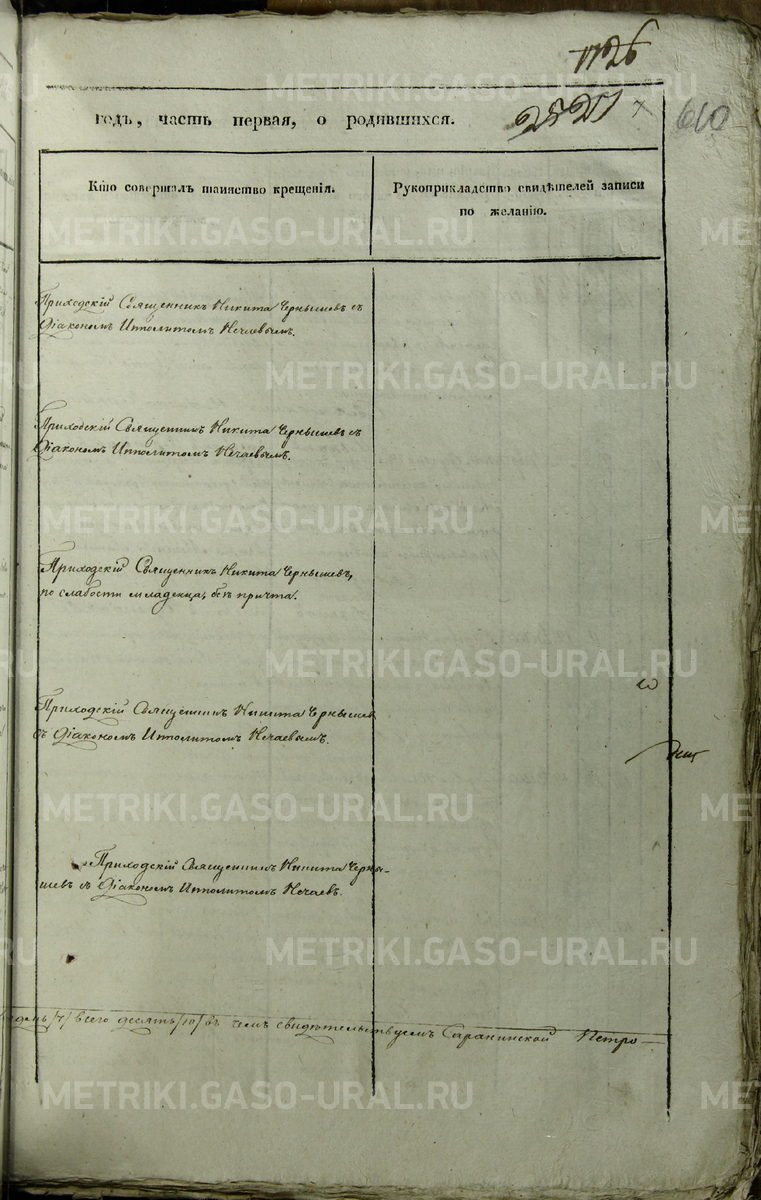 1126
2527
610
годъ, часть первая, о родившихся.
Кто совершалъ таинство крещенія.
Рукоприкладство свидѣтелей записи
по желанію.
Приходскій Священникъ Никита Чернышевъ съ
Діакономъ Ипполитомъ Нечаевымъ.
Приходскій Священникъ Никита Чернышевъ съ
Діакономъ Ипполитомъ Нечаевымъ.
Приходскій Священникъ Никита Чернышевъ,
по слабости младенца, безъ причта.
Приходскій Священникъ Никита Чернышев
съ Діакономъ Ипполитомъ Нечаевымъ.
Приходскій Священникъ Никита Черны-
шевъ съ Діакономъ Ипполитомъ Нечаевъ.
/7/ всего десять /10/ въ чемъ свидѣтельствуемъ Саранинской Петро-
METRIKI.GASO-URAL.RU